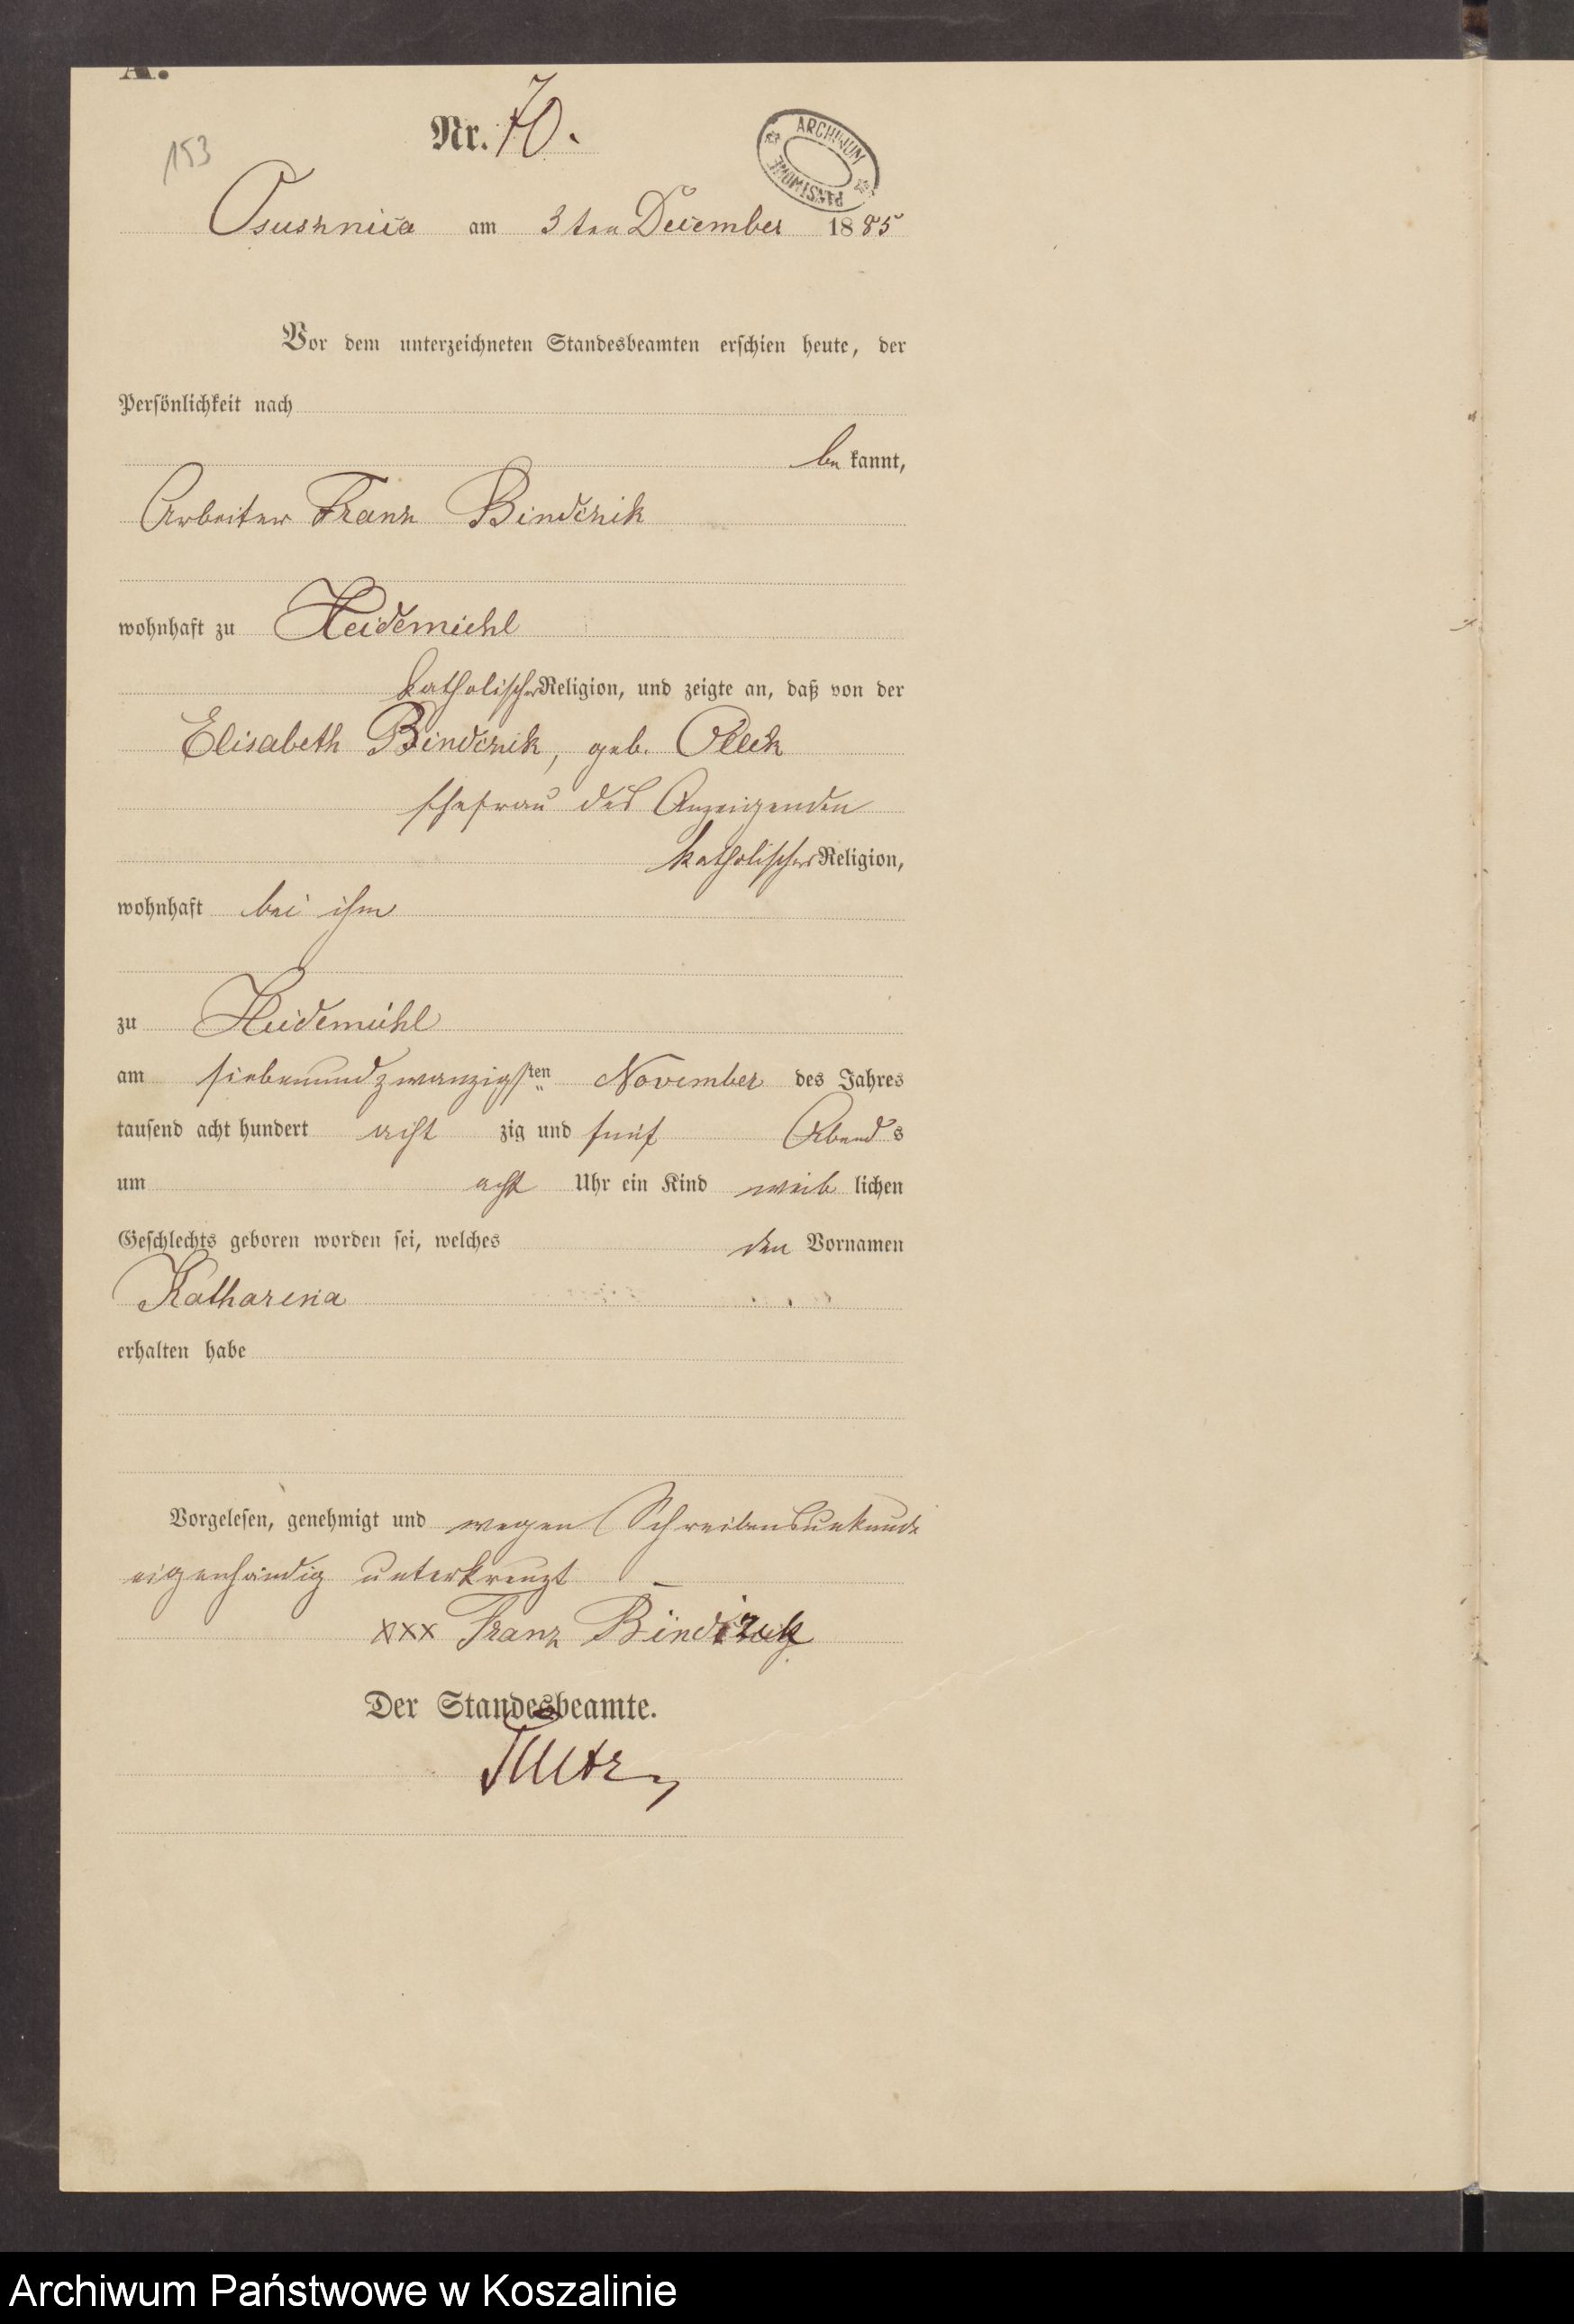 A.
Nr. 70.
153
ARCHIWUM PAŃSTWOWE
Osusznica am 3ten December 1885
Vor dem unterzeichneten Standesbeamten erschien heute, der
Persönlichkeit nach
be kannt,
Arbeiter Franz Bindczik
wohnhaft zu Heidemühl
katholischer Religion, und zeigte an, daß von der
Elisabeth Bindczik, geb.
Ehefrau des Anzeigenden
katholischer Religion,
wohnhaft bei ihm
zu Heidemühl
am siebenundzwanzigsten November des Jahres
tausend acht hundert acht zig und fünf Abends
um acht Uhr ein Kind weib lichen
Geschlechts geboren worden sei, welches den Vornamen
Katharina
erhalten habe
Vorgelesen, genehmigt und wegen Schreibensunkunde
eigenhändig unterkreuzt
xxx Franz
Der Standesbeamte.
Archiwum Państwowe w Koszalinie